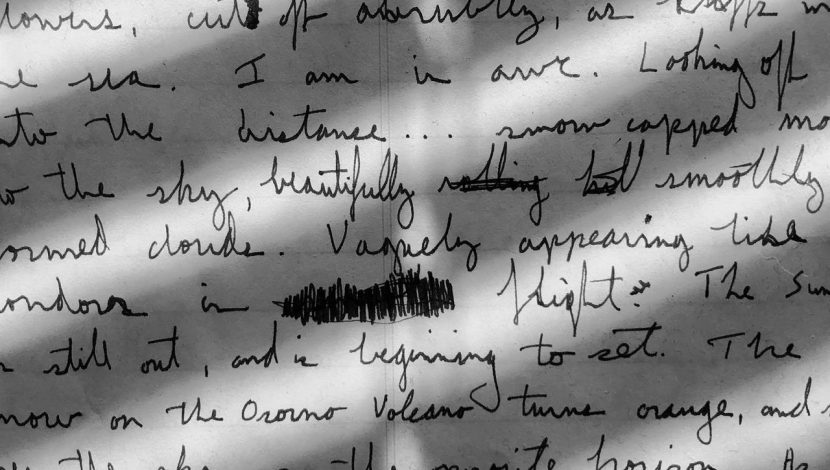 flowers, cut off abruptly, as
the sea. I am in awe. Looking off
into the distance... snow capped mo
to the sky, beautifully smoothly
formed clouds. Vaguely appearing like
condors in flight. The Sun
is still out, and is beginning to set. The
snow on the Osorno Volcano turns orange, and
the sky the opposite horizon. As